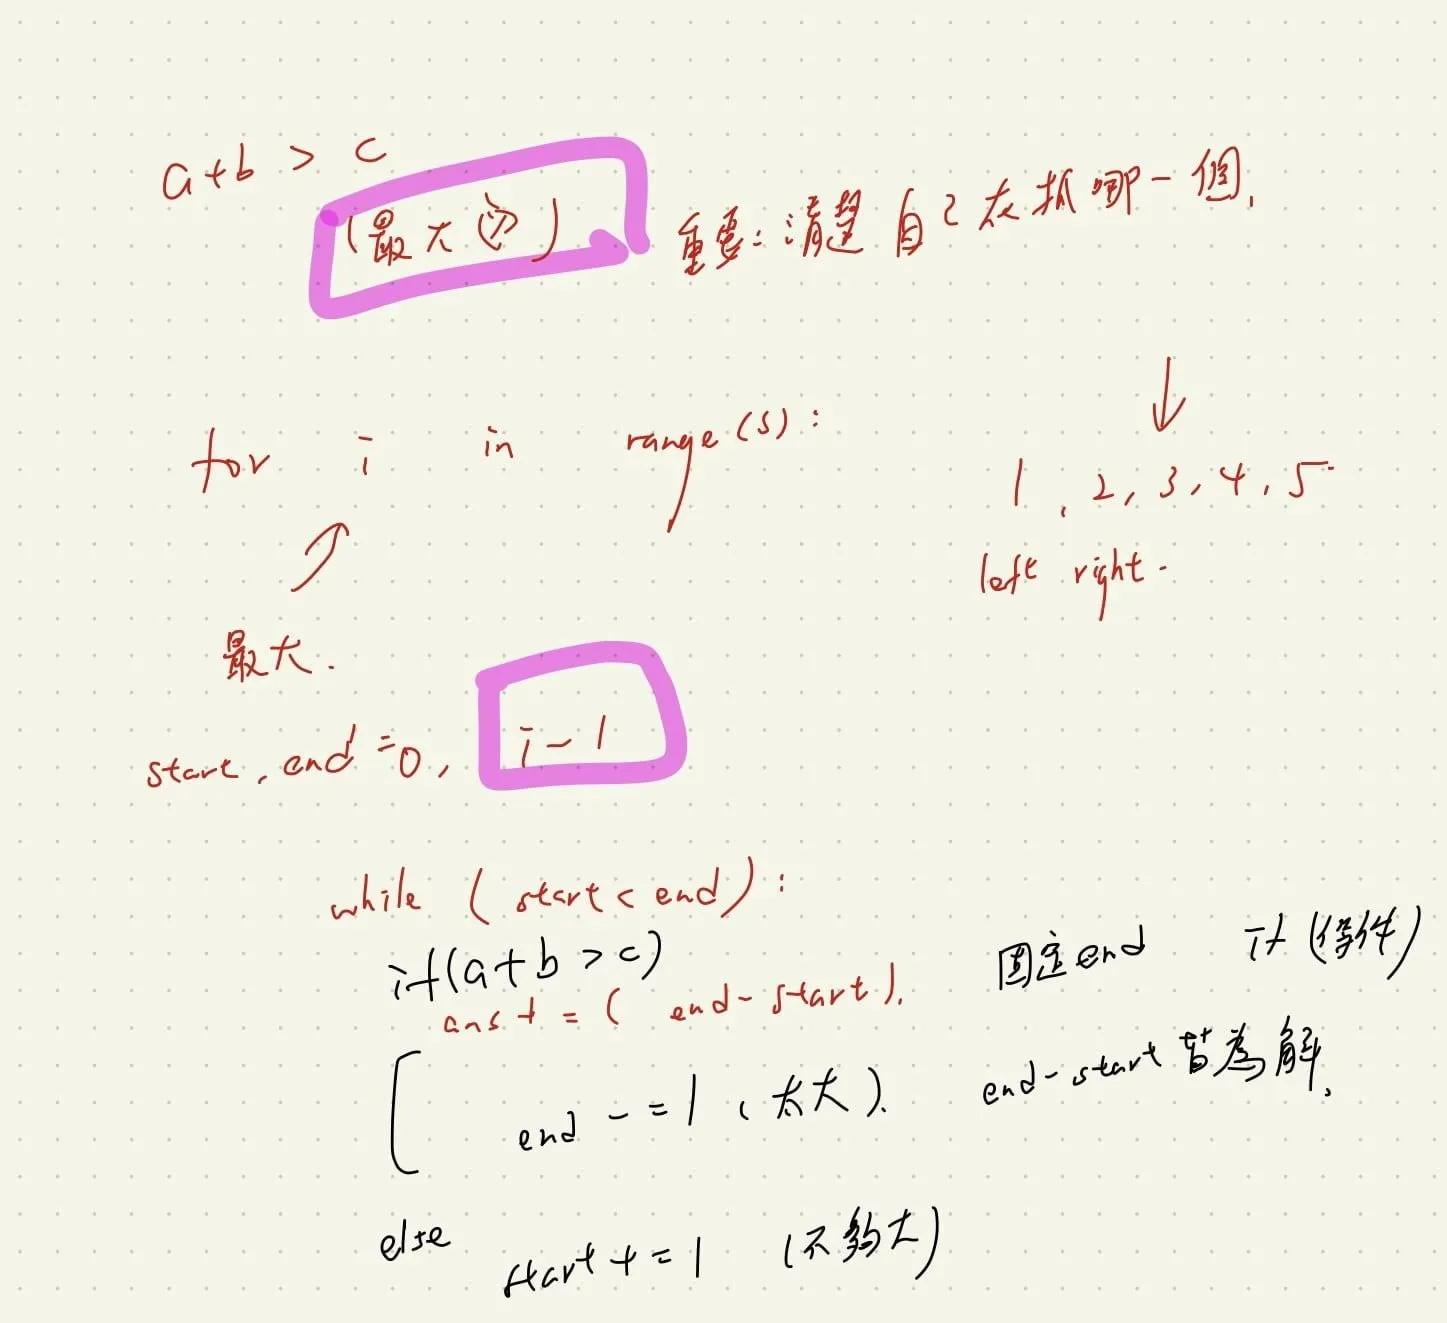 a+b > c
(最大的) 重要:清楚自己在抓哪一個.
for i in range(5):
1, 2, 3, 4, 5
left right.
最大.
start, end = 0, i-1
while (start < end):
if(a+b > c)
ans += ( end-start).
固定end if (條件)
end -= 1 (太大).
end-start 皆為解.
else
start += 1 (不夠大)